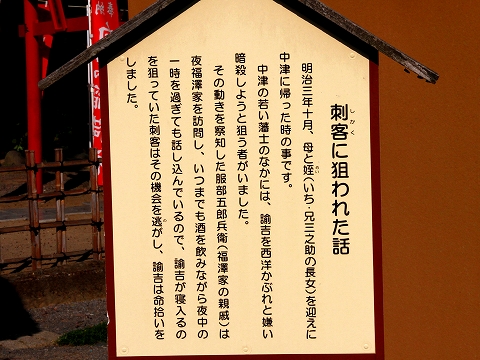 刺客に狙われた話
しかく
明治三年十月、母と姪(いち・兄三之助の長女)を迎えに
めい
中津に帰った時の事です。
中津の若い藩士のなかには、諭吉を西洋かぶれと嫌い
暗殺しようと狙う者がいました。
その動きを察知した服部五郎兵衛(福澤家の親戚)は
夜福澤家を訪問し、いつまでも酒を飲みながら夜中の
一時を過ぎても話し込んでいるので、諭吉が寝入るの
を狙っていた刺客はその機会を逃がし、諭吉は命拾いを
の
しました。